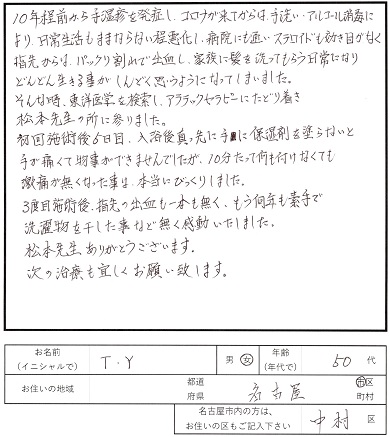 10年程前から手湿疹を発症し、コロナが来てからは、手洗い・アルコール消毒に
より、日常生活もままならない程悪化し、病院にも通いステロイドも効き目がなく
指先からは、パックリ割れで出血し、家族に髪を洗ってもらう日常になり
どんどん生きる事が しんどく思うようになってしまいました。
そんな時、東洋医学を検索し、アララックセラピーにたどり着き
松本先生の所に参りました。
初回施術後6日目、入浴後真っ先に手に保湿剤を塗らないと
手が痛くて物事ができませんでしたが、10分たって何も付けなくても
激痛が無くなった事は、本当にびっくりしました。
3度目施術後、指先の出血も一本も無く、もう何年も素手で
洗濯物を干した事など無く感動いたしました。
松本先生ありがとうございます。
次の治療も宜しくお願い致します。
お名前
(イニシャルで)
T・Y
男・女
年齢
(年代で)
50 代
お住いの地域
都道
府県
名古屋
市区
町村
名古屋市内の方は、
お住いの区もご記入下さい
中村 区